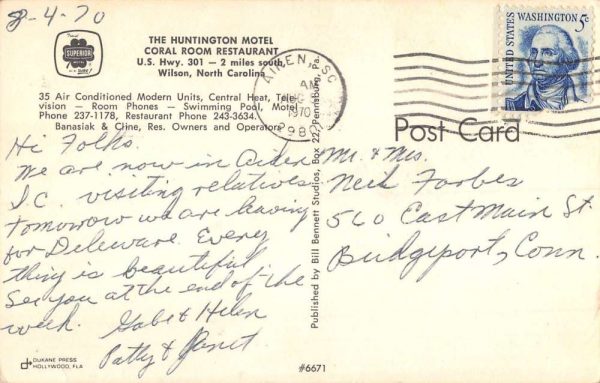 8-4-70
Travel
SUPERIOR
THE HUNTINGTON MOTEL
CORAL ROOM RESTAURANT
U.S. Hwy. 301 — 2 miles south,
Wilson, North Carolina
35 Air Conditioned Modern Units, Central Heat, Tele-
vision — Room Phones — Swimming Pool, Motel
Phone 237-1178, Restaurant Phone 243-3634.
Banasiak & Cline, Res. Owners and Operators
Hi Folks.
We are now in Aiden
S.C. visiting relatives
tomorrow we are leaving
for Deleware. Every
thing is beautiful.
See you at the end of the
week. Gabe & Helen
Patty & Janet
DUKANE PRESS
HOLLYWOOD, FLA
Published by Bill Bennett Studios, Box 22, Pennsburg, Pa.
#6671
AIKEN, SC
AM
1970
298
UNITED STATES
WASHINGTON 5¢
Post Card
Mr. & Mrs.
Neil Forbes
560 East Main St.
Bridgeport, Conn.